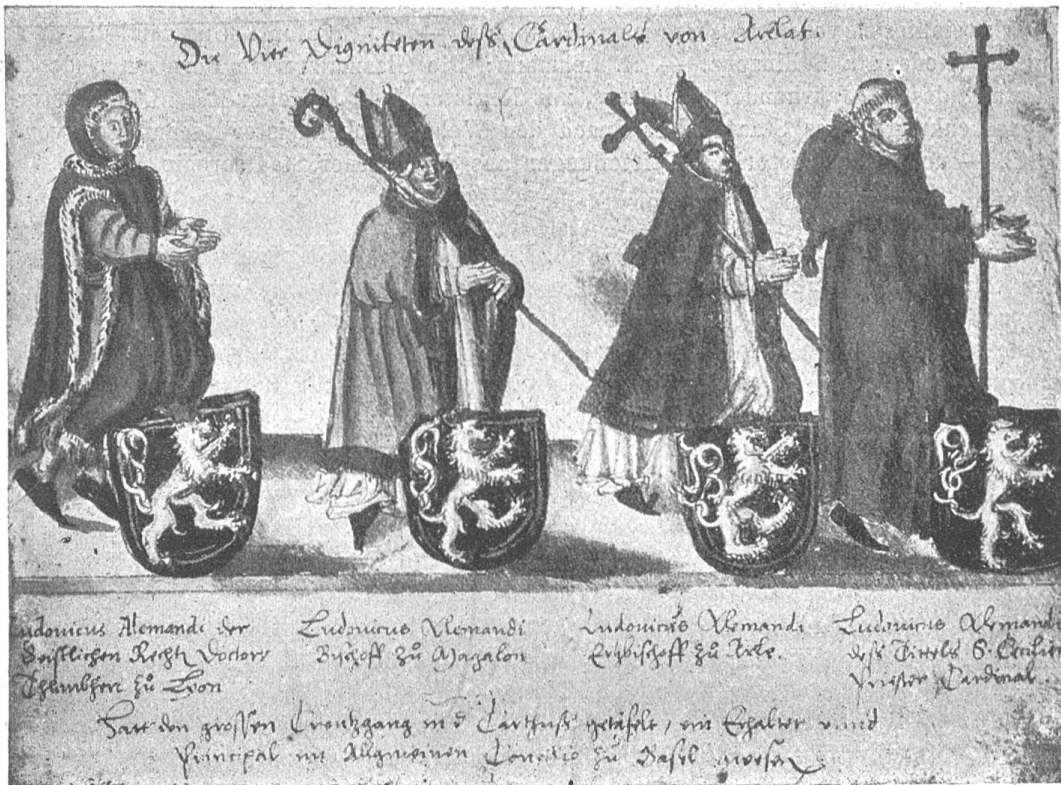 Die Vier Digniteten deß Cardinals von Arelat.
Ludouicus Alemandi der
Geistlichen Rechtẽ Doctor
Thumbherr zů Lyon
Ludouicus Alemandi
Bischoff zů Magalon
Ludouicus Alemandi
Ertzbischoff zů Arle.
Ludouicus Alemandi
deß Tittels S. Cecilien
Priester Cardinal.
Hatt den grossen Creutzgang in d Carthuß getäfelt, ein Erhalter vnnd
Principal im Allgemeinen Concilio zů Basel gwesen